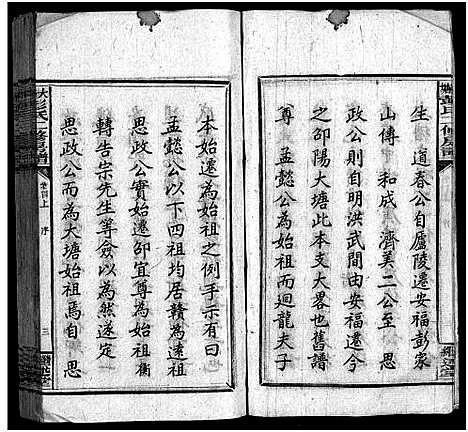 生道春公自廬陵遷安福彭家
山傳和成濟美二公至思
政公則自明洪武間由安福遷今
之邵陽大塘此本支大畧也舊譜
尊孟懿公為始祖而廻龍夫子
本始遷為始祖之例手示有以
孟懿公以下四祖均居贛為遠祖
思政公實始遷邵宜尊為始祖衡
轉告宗先生等僉以為然遂定
思政公而為大塘始祖焉自思
卷首上 序 三